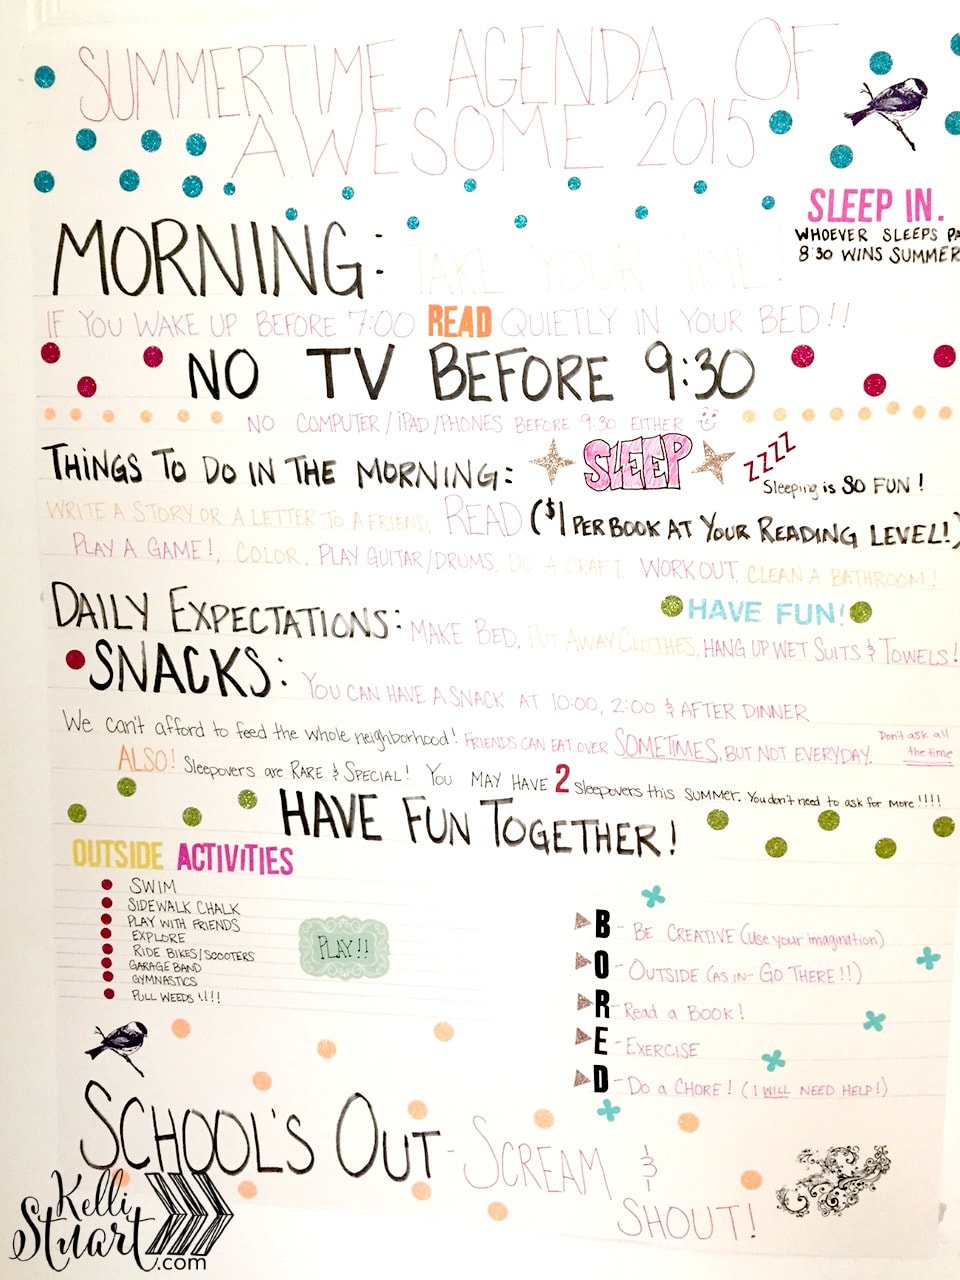 SUMMERTIME AGENDA OF
AWESOME 2015
SLEEP IN.
WHOEVER SLEEPS PA
8:30 WINS SUMMER
MORNING: TAKE YOUR TIME!
IF YOU WAKE UP BEFORE 7:00 READ QUIETLY IN YOUR BED!!
NO TV BEFORE 9:30
NO COMPUTER/iPAD/PHONES BEFORE 9:30 EITHER
THINGS TO DO IN THE MORNING: SLEEP ZZZZ
Sleeping is SO FUN!
WRITE A STORY OR A LETTER TO A FRIEND, READ ($1 PER BOOK AT YOUR READING LEVEL!)
PLAY A GAME!, COLOR, PLAY GUITAR/DRUMS, DO A CRAFT, WORK OUT, CLEAN A BATHROOM!
HAVE FUN!
DAILY EXPECTATIONS: MAKE BED, PUT AWAY CLOTHES, HANG UP WET SUITS & TOWELS!
SNACKS: YOU CAN HAVE A SNACK AT 10:00, 2:00 & AFTER DINNER
We can't afford to feed the whole neighborhood! FRIENDS CAN EAT OVER SOMETIMES, BUT NOT EVERYDAY.
Don't ask all
the time
ALSO! Sleepovers are RARE & SPECIAL! YOU MAY HAVE 2 sleepovers this SUMMER. You don't need to ask for more!!!!
HAVE FUN TOGETHER!
OUTSIDE ACTIVITIES
SWIM
SIDEWALK CHALK
PLAY WITH FRIENDS
EXPLORE
RIDE BIKES/SCOOTERS
GARAGE BAND
GYMNASTICS
PULL WEEDS!!!!!
PLAY!!
B - BE CREATIVE (Use your imagination)
O - OUTSIDE (AS IN - GO THERE!!)
R - Read a BOOK!
E - EXERCISE
D - DO A CHORE! (I WILL NEED HELP!)
SCHOOL'S OUT - SCREAM &
SHOUT!
Kelli
Stuart
.com